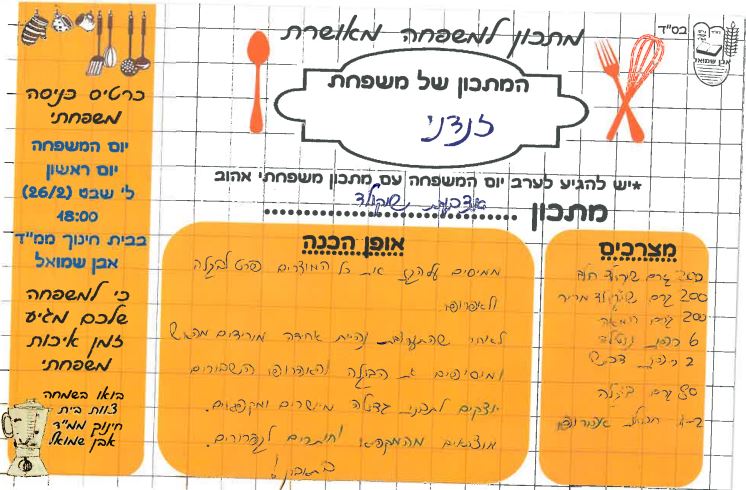 בס"ד
אבן שמואל
מתכון למשפחה מאושרת
המתכון של משפחת
זנדני
*יש להגיע לערב יום המשפחה עם מתכון משפחתי אהוב
מתכון שוקולד
מצרכים
200 גרם שוקולד חלב
200 גרם שוקולד מריר
200 גרם חמאה
6 כפות נוטלה
2 כפות דבש
80 גרם
2-1 חבילות
אופן הכנה
ממיסים על את כל המוצרים פרט
לאחר שהתערובת נהיית אחידה מורידים מהאש
ומוסיפים את השבורים
יוצקים לתבנית מיישרים ומקפיאים.
מוצאים מהמקפיא וחותכים
בתאבון!
כרטיס כניסה
משפחתי
יום המשפחה
יום ראשון
ל' שבט (26/2)
18:00
בבית חינוך ממ"ד
אבן שמואל
כי למשפחה
שלכם מגיע
זמן איכות
משפחתי
בואו בשמחה
צוות בית
חינוך ממ"ד
אבן שמואל